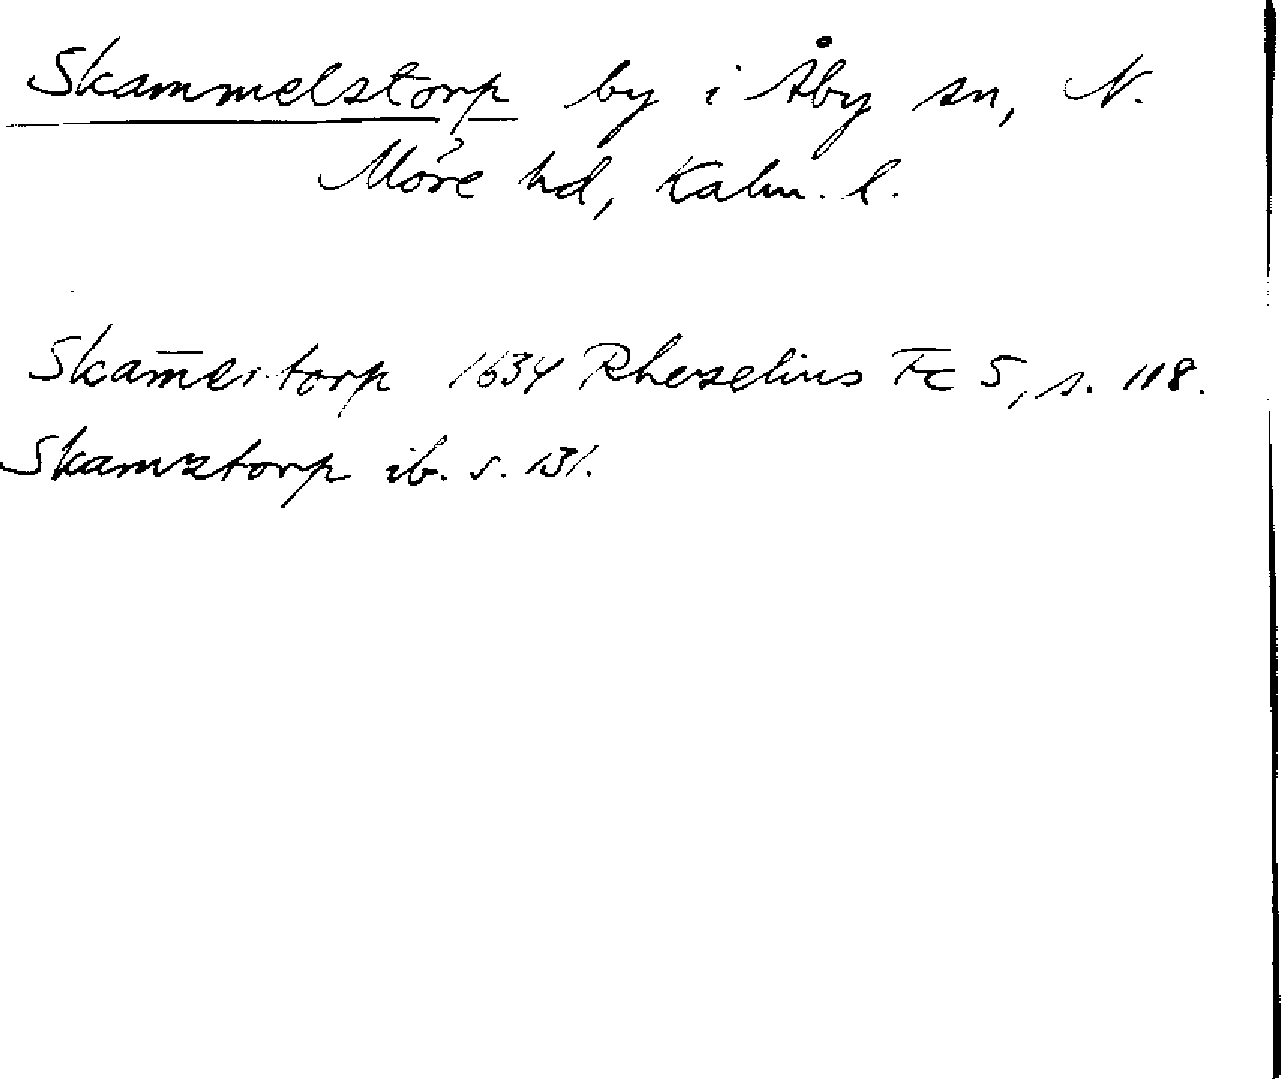 Skammelstorp by i Åby sn, N.
Möre hd, Kalm. l.
Skam̄ertorp 1634 Rhezelius Fc 5, s. 118.
Skamztorp ib. s. 131.